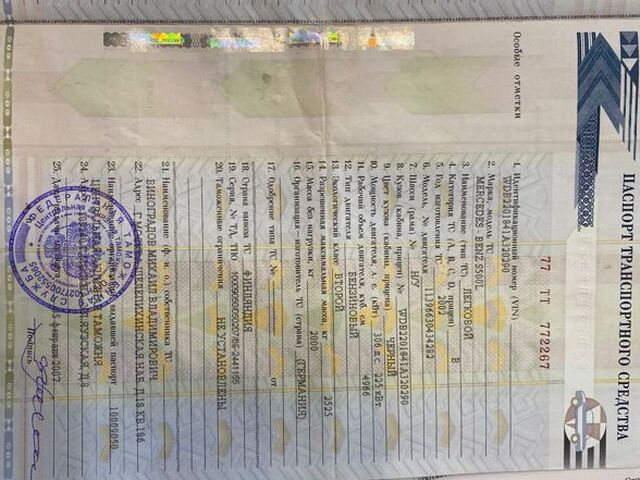 ПАСПОРТ ТРАНСПОРТНОГО СРЕДСТВА
77 ТТ 772267
Особые отметки
1. Идентификационный номер (VIN) WDB2201841A120290
2. Марка, модель ТС MERCEDES - BENZ S500L
3. Наименование (тип ТС) ЛЕГКОВОЙ
4. Категория ТС (A, B, C, D, прицеп) B
5. Год изготовления ТС 2002
6. Модель, № двигателя 11396630434282
7. Шасси (рама) № Н/У
8. Кузов (кабина, прицеп) № WDB2201841A120290
9. Цвет кузова (кабины, прицепа) ЧЕРНЫЙ
10. Мощность двигателя, л. с. (кВт) 306 л.с. - 225 кВт.
11. Рабочий объем двигателя, куб. см 4966
12. Тип двигателя БЕНЗИНОВЫЙ
13. Экологический класс ВТОРОЙ
14. Разрешенная максимальная масса, кг 2525
15. Масса без нагрузки, кг 2800
16. Организация-изготовитель ТС (страна) (ГЕРМАНИЯ)
17. Одобрение типа ТС № от
18. Страна вывоза ТС ФИНЛЯНДИЯ
19. Серия, № ТД, ТПО
20. Таможенные ограничения НЕ УСТАНОВЛЕНЫ
21. Наименование (ф. и. о.) собственника ТС
ВИНОГРАДОВ МИХАИЛ ВЛАДИМИРОВИЧ
22. Адрес Г. ШЕЛЕПИХИНСКАЯ НАБ. Д.18 КВ.186
23. выдавшей паспорт 10009050
ТАМОЖНЯ
24.
25. февраля 2007
Подпись